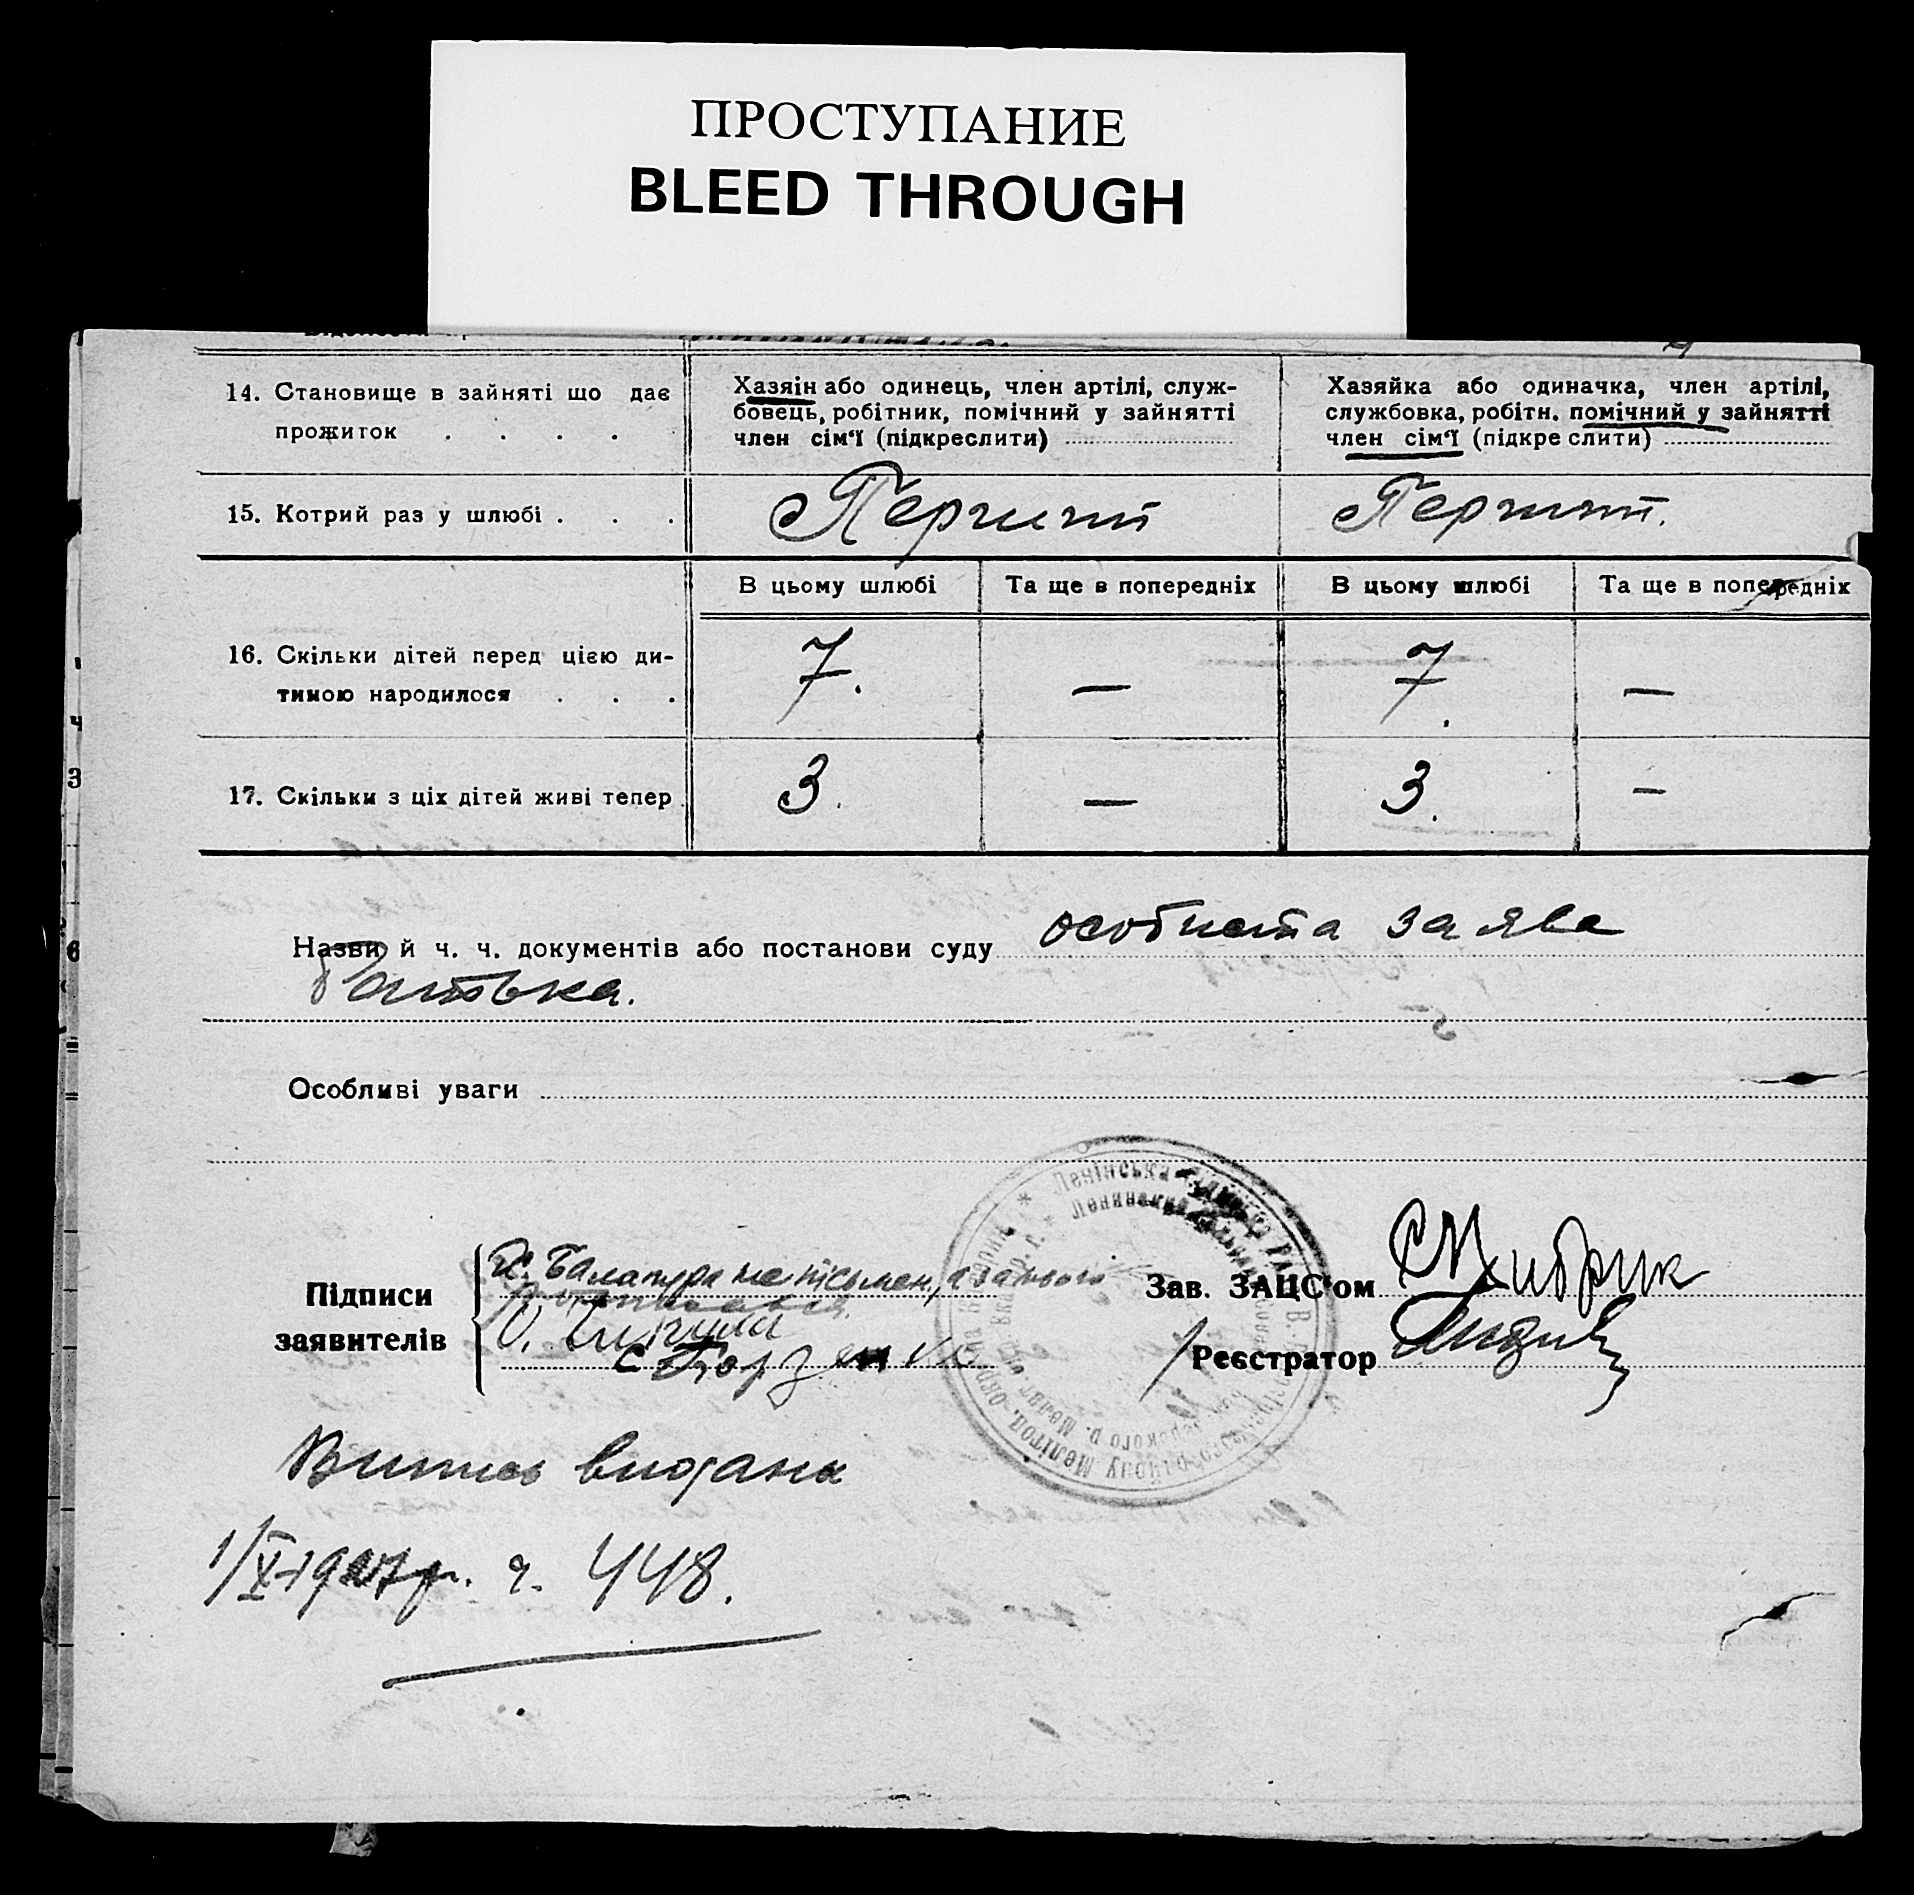 ПРОСТУПАНИЕ
BLEED THROUGH
14. Становище в зайняті що дає
прожиток . . . .
Хазяін або одинець, член артілі, служ-
бовець, робітник, помічний у зайнятті
член сім'ї (підкреслити)
Хазяйка або одиначка, член артілі,
службовка, робітн. помічний у зайнятті
член сім'ї (підкреслити)
15. Котрий раз у шлюбі . . .
Перший
Перший.
В цьому шлюбі
Та ще в попередніх
В цьому шлюбі
Та ще в попередніх
16. Скільки дітей перед цією ди-
тиною народилося . . .
7.
—
7.
—
17. Скільки з ціх дітей живі тепер
3.
—
3.
—
Назви й ч. ч. документів або постанови суду особиста заява
батька.
Особливі уваги
Підписи
заявителів
Балапура неписьмен, а за нього
О.
Зав. ЗАЦС'ом
Реєстратор
Ленінська
Випись видана
1/X-1927р. ч. 448.